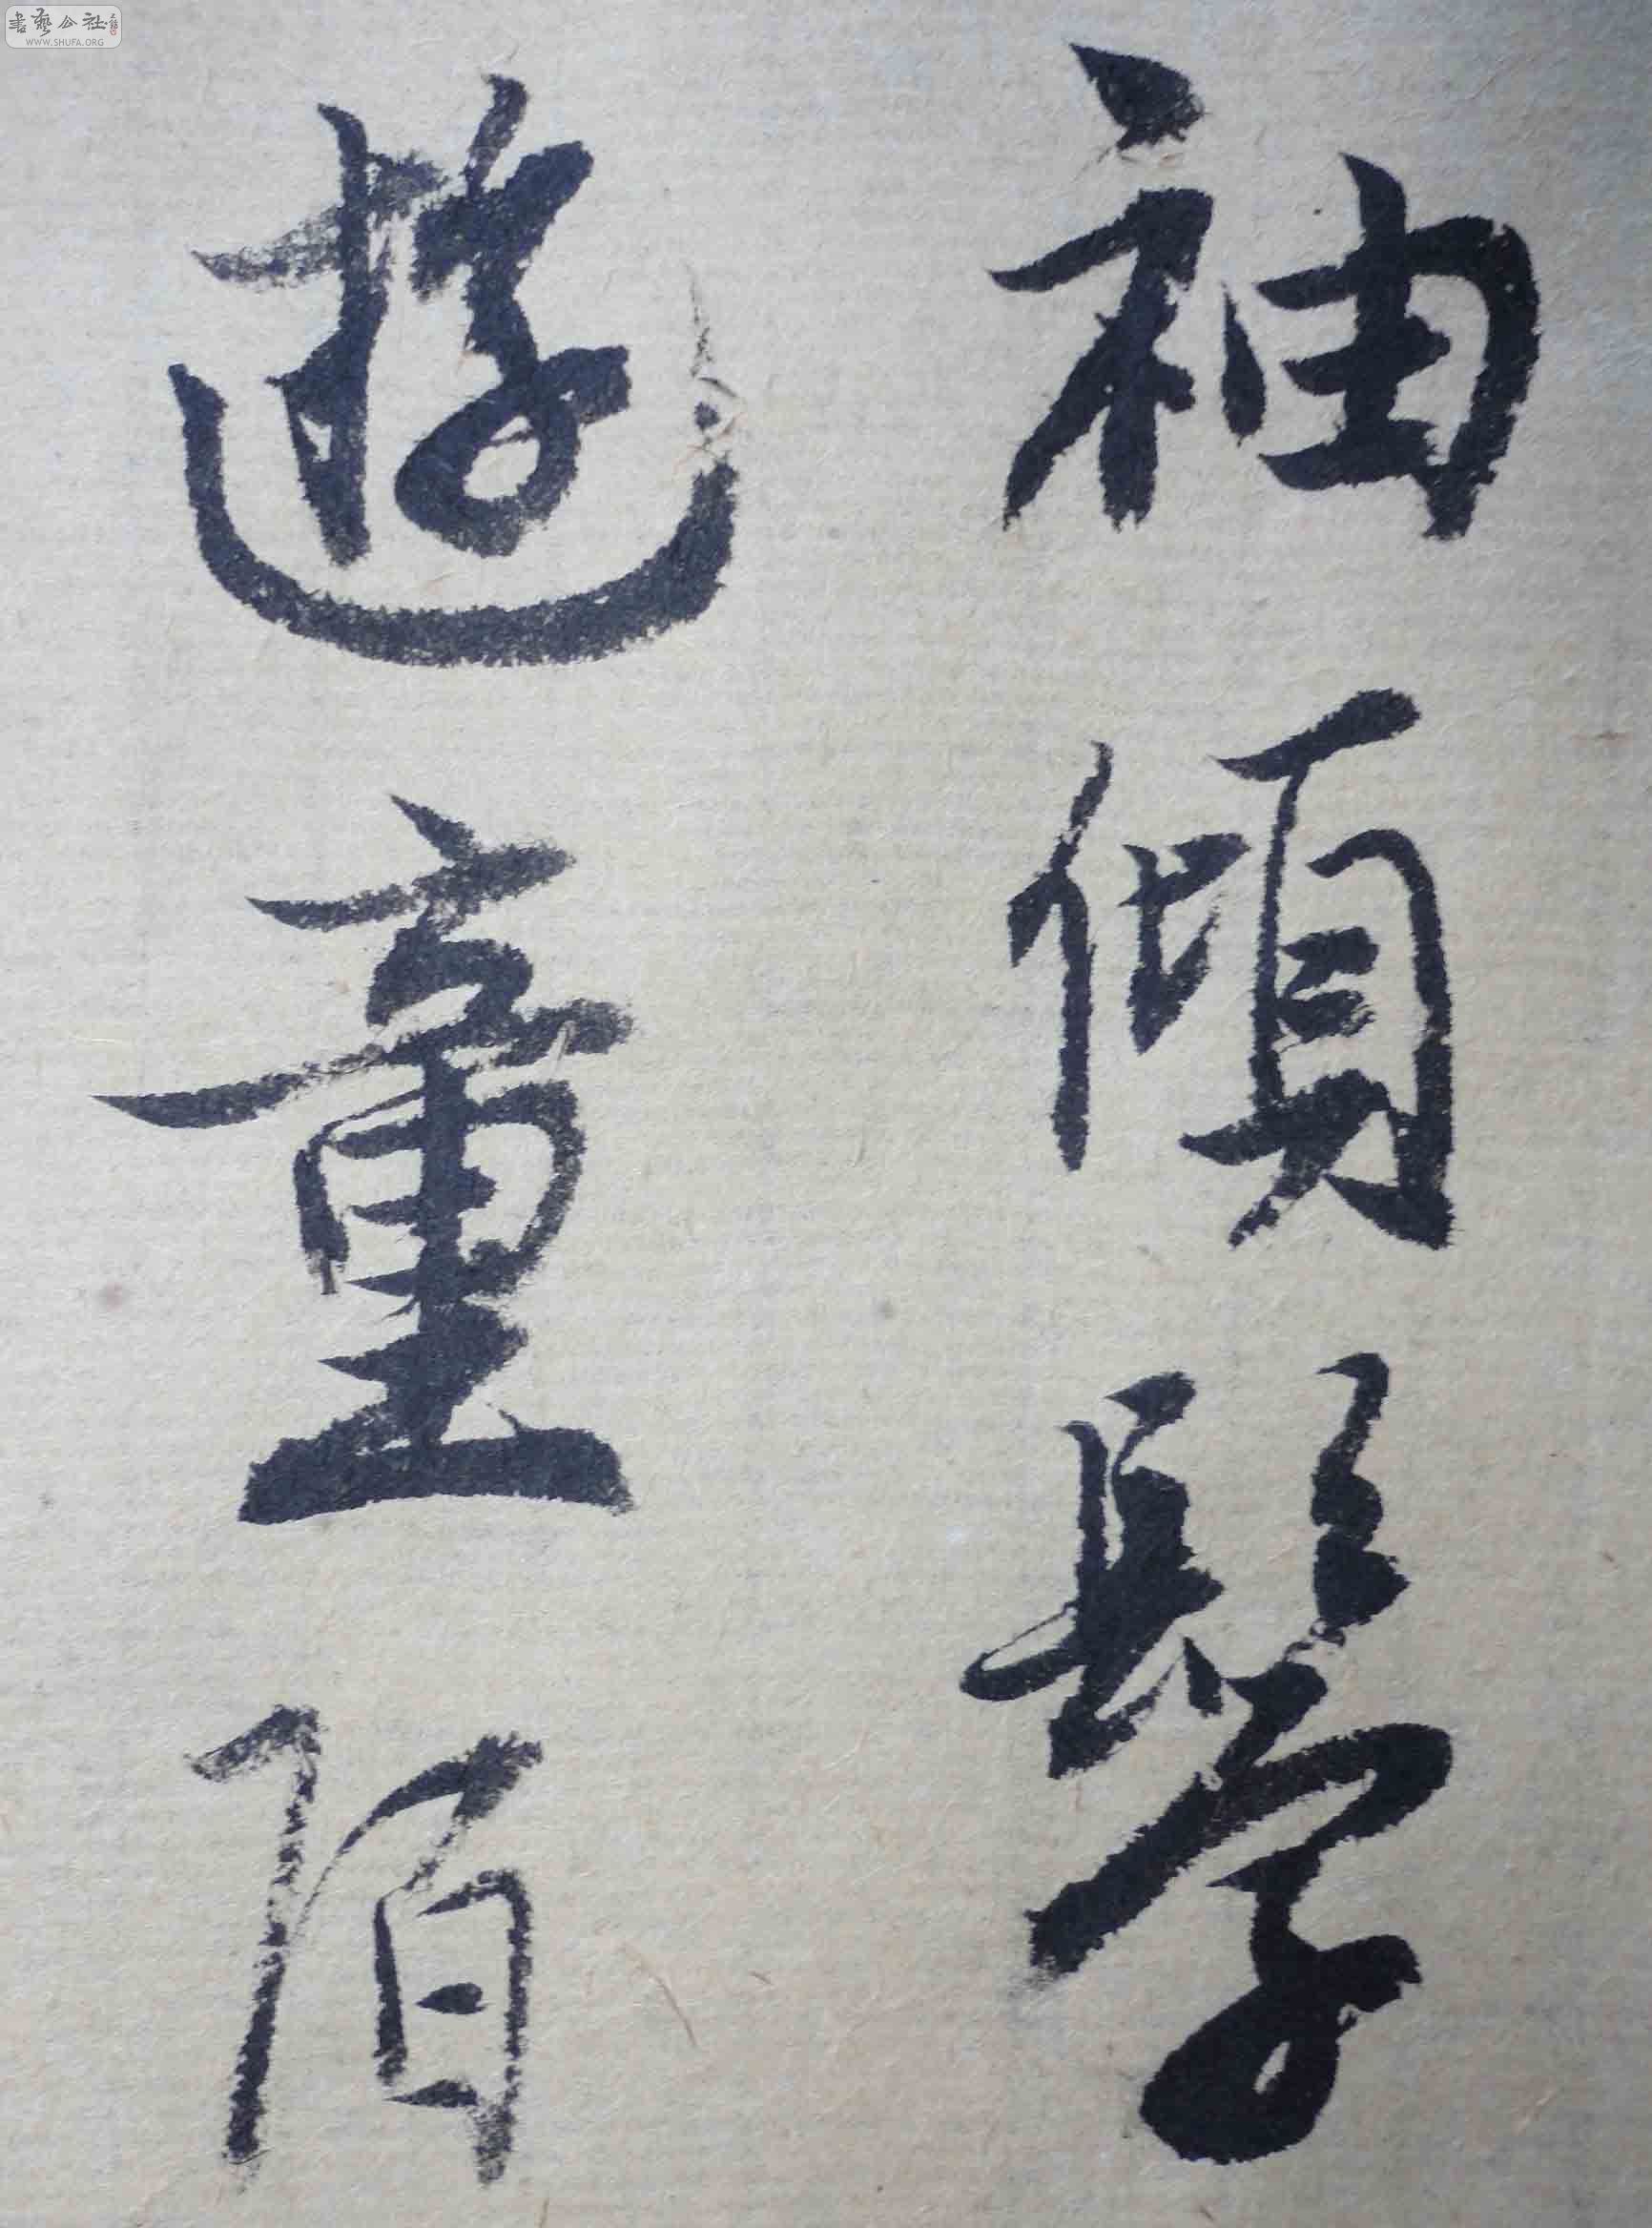 書藝公社
WWW.SHUFA.ORG
袖傾鬢
遊童陌